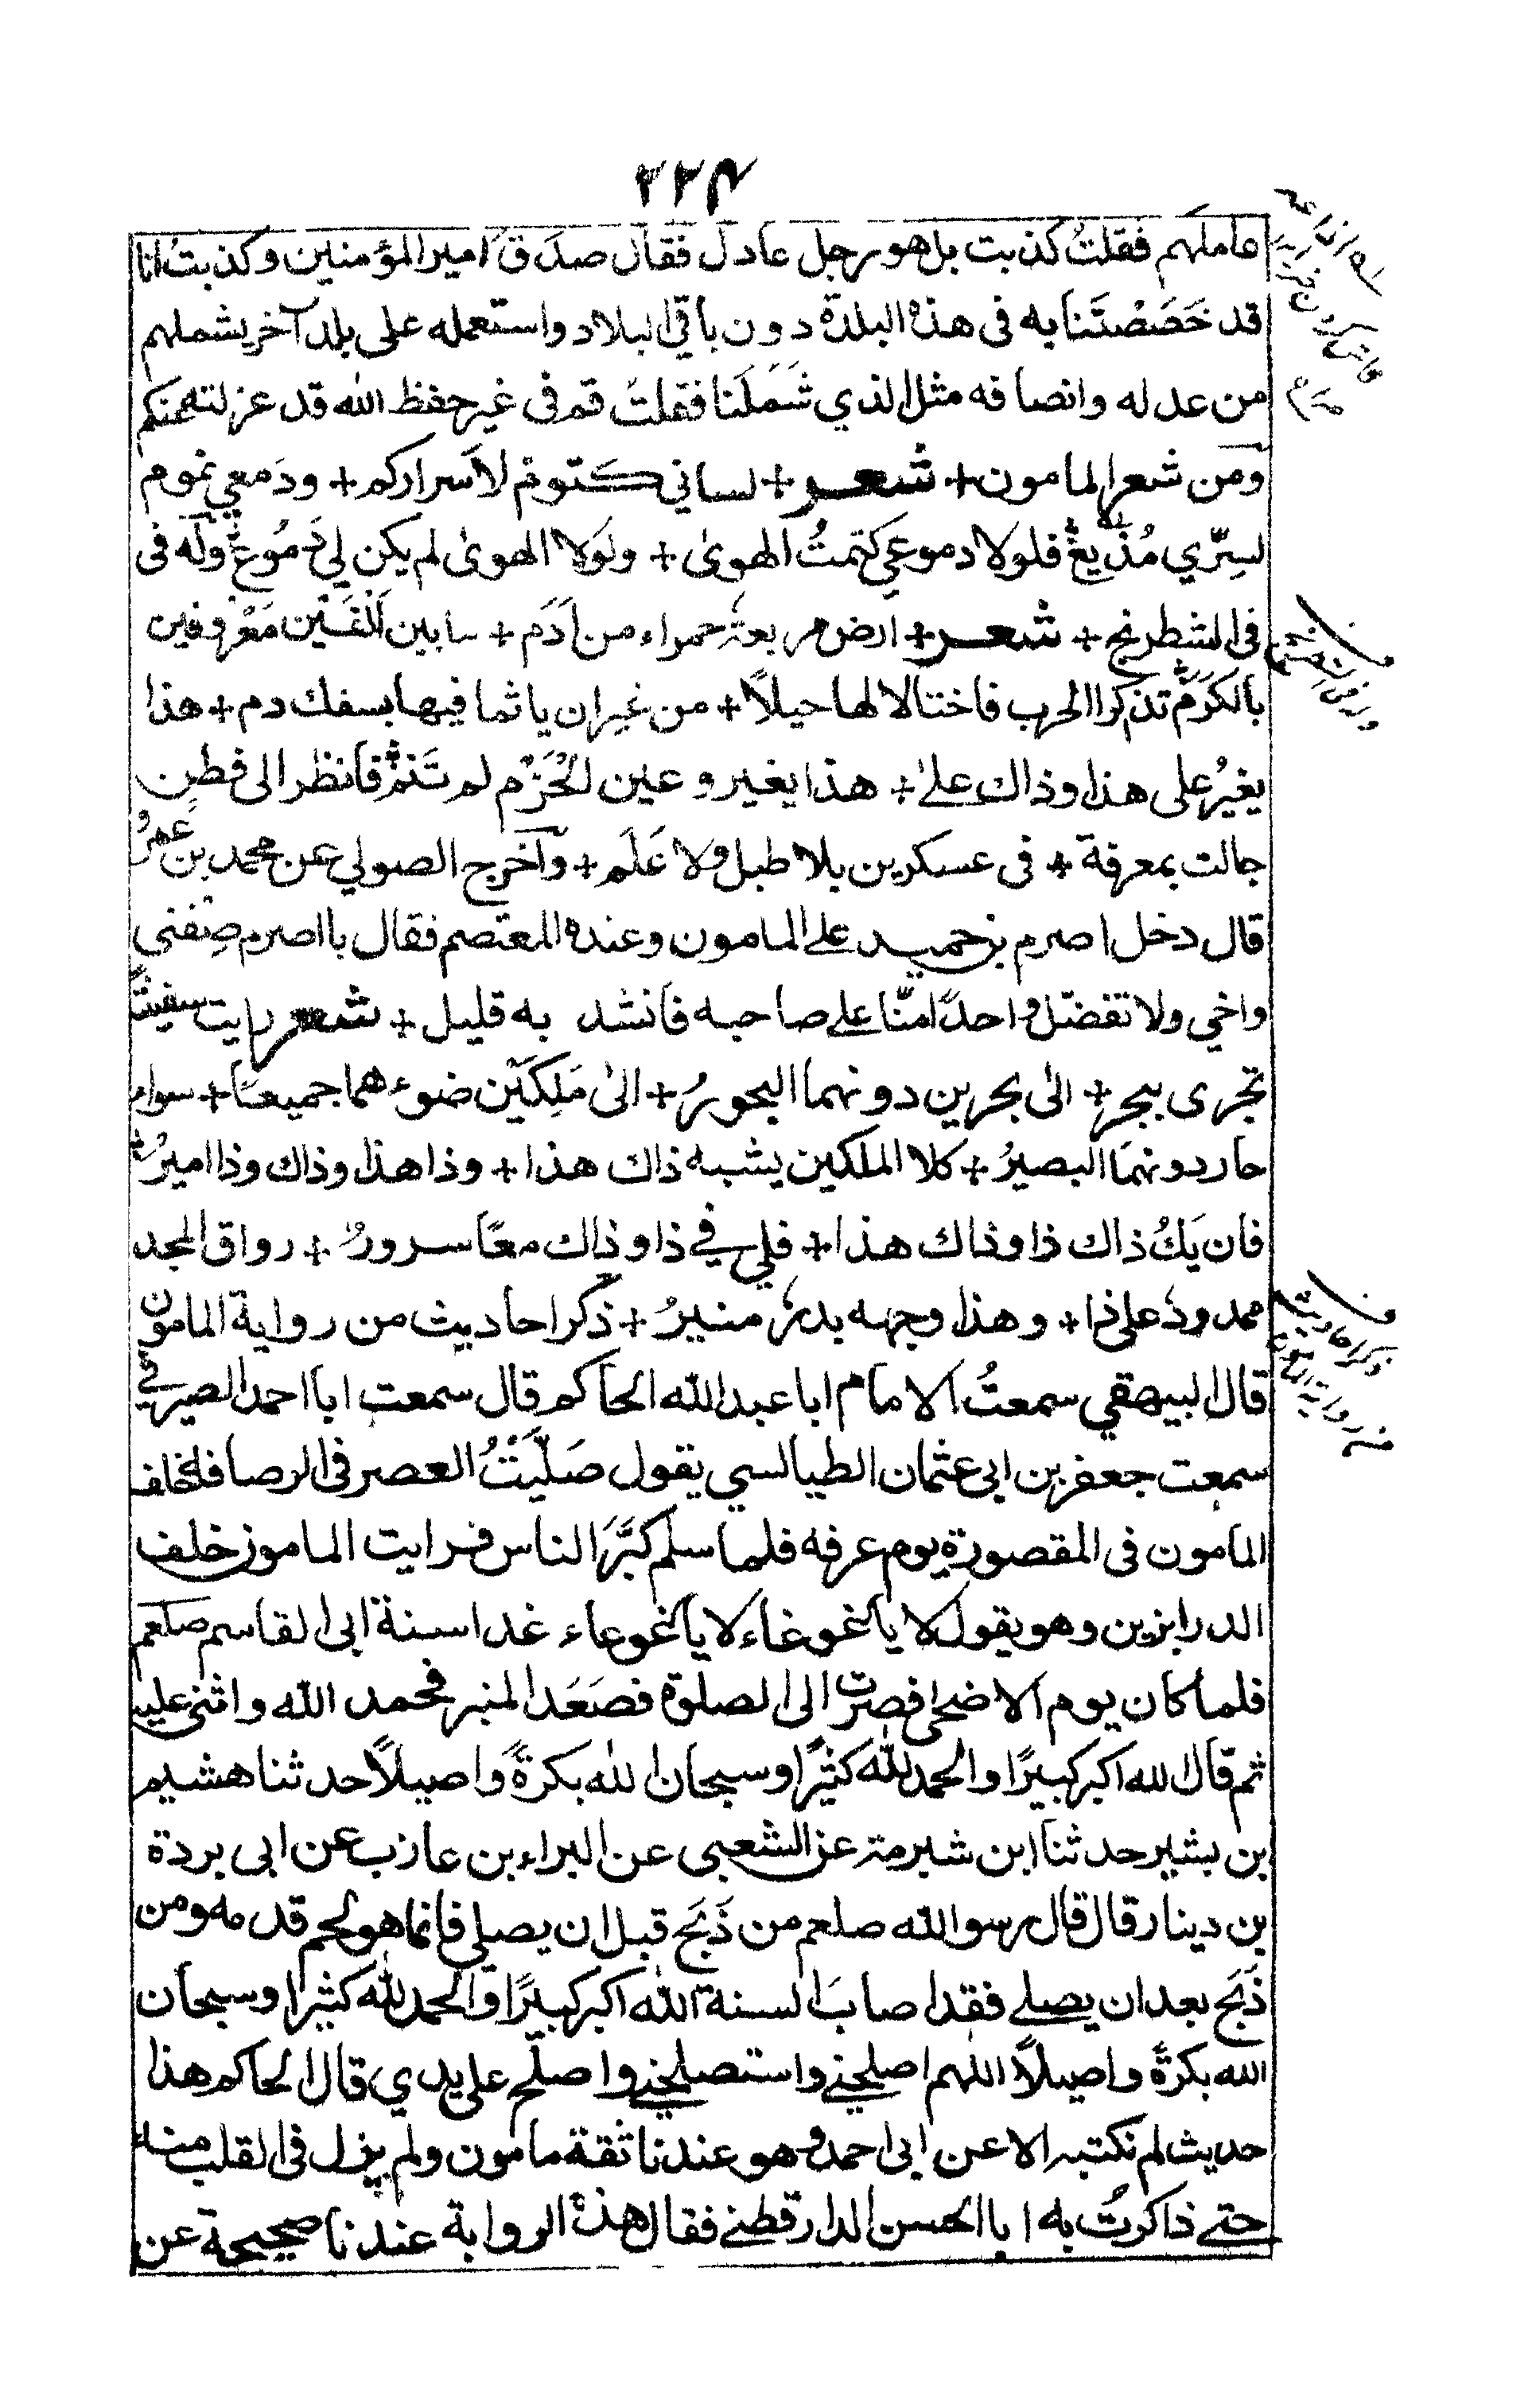 ٢٢٤
عاملهم فقلتُ كذبت بل هو رجل عادل فقال صدق امير المؤمنين وكذبتُ انا
قد خَصَصْتَنا به فى هذه البلدة دون باقى البلاد واستعمله على بلد آخر يشملهم
من عدله وانصافه مثل الذي شَمَلَنا فقلتُ قم فى غير حفظ الله قد عزلته عنكم
ومن شعر المامون + شعر + لساني كتومٌ لاسراركم + ودمعي نموم
لسِرّي مُذيعٌ فلولا دموعي كتمتُ الهوىٰ + ولولا الهوىٰ لم يكن لي دُمُوعٌ وله فى
فى الشطرنج + شعر + ارض مربعة حمراء من اَدَم + ما بين اِلْفَيْن مَعْرُوفين
بالكَرَم تذكرا الحرب فاختالا لها حيلاً + من غير ان ياثما فيها بسفك دم + هذا
يغيرُ على هذا وذاك على + هذا يغير وعين الحَزْم لم تَنَم فانظر الى فطن
جالت بمعرفة + فى عسكرين بلا طبل ولا عَلَم + وآخرج الصولي عن محمد بن عمرو
قال دخل اصرم بن حميد على المامون وعنده المعتصم فقال يا اصرم صِفنى
واخي ولا تفضّل واحدًا منّا على صاحبه فانشد به قليل + شعر رايت سفينةً
تجرى ببحر + الى بحرين دونهما البحورُ + الىٰ مَلِكَيْن ضوءهما جميعًا + سواء
حار دونهما البصيرُ + كلا الملكين يشبه ذاك هذا + وذا هذا وذاك وذا اميرُ
فان يَكُ ذاك ذا وذاك هذا + فلي في ذا وذاك معًا سرورُ + رواق المجد
ممدودٌ على ذا + وهذا وجهه بدرٌ منيرُ + ذكر احاديث من رواية المامون
قال البيهقي سمعتُ الامام ابا عبد الله الحاكم قال سمعت ابا احمد الصيرفي
سمعت جعفر بن ابى عثمان الطيالسي يقول صَلَّيْتُ العصر فى الرصافة خلف
المامون فى المقصورة يوم عرفه فلما سلم كبَّرَ الناس فرايت المامون خلف
الدرابزين وهو يقول لا يا غوغاء لا يا غوغاء غدا سنة ابى القاسم صلعم
فلما كان يوم الاضحى فصرت الى الصلوة فصَعَد المنبر فحمد الله واثنى عليه
ثم قال الله اكبر كبيرًا والحمد لله كثيرًا وسبحان الله بكرةً واصيلاً حدثنا هشيم
بن بشير حدثنا ابن شبرمة عن الشعبى عن البراء بن عازب عن ابى بردة
بن دينار قال قال رسو الله صلعم من ذَبَح قبل ان يصلى فانما هو لحم قدمه ومن
ذَبَح بعد ان يصلى فقد اصابَ السنة الله اكبر كبيرًا والحمد لله كثيرا وسبحان
الله بكرةً واصيلاً اللهم اصلحنى واستصلحنى واصلح على يدي قال الحاكم هذا
حديث لم نكتبه الا عن ابى احمد وهو عندنا ثقة مامون ولم يزل فى القلب منه
حتى ذاكرتُ به ابا الحسن الدارقطنى فقال هذه الرواية عندنا صحيحة عن
ذكر احاديث
من رواية المامون